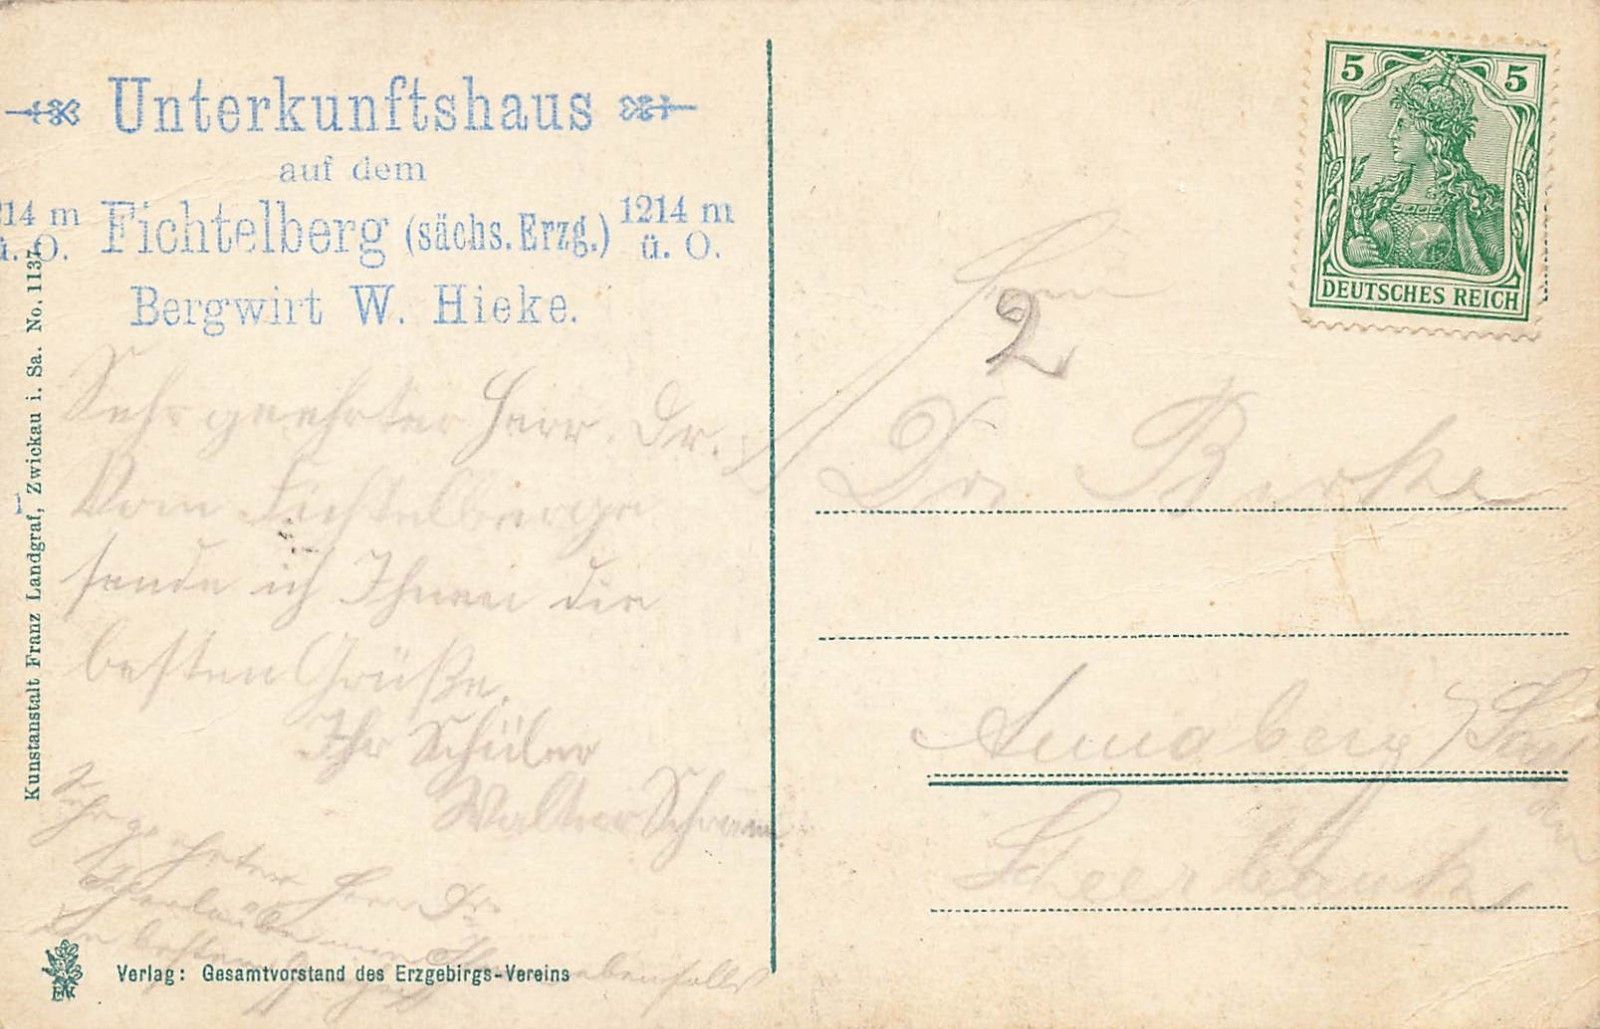 Unterkunftshaus
auf dem
Fichtelberg (sächs. Erzg.)
214 m
ü. O.
1214 m
ü. O.
Bergwirt W. Hieke.
Sehr geehrter Herr Dr.
Vom Fichtelberge
sende ich Ihnen die
besten Grüße.
Ihr Schüler
Walter
Sehr geehrter Herr Dr.
Ihnen ebenfalls
besten
Kunstanstalt Franz Landgraf, Zwickau i. Sa. No. 1137.
Verlag: Gesamtvorstand des Erzgebirgs-Vereins
5 5
DEUTSCHES REICH
Herrn
2
Dr.
Annaberg